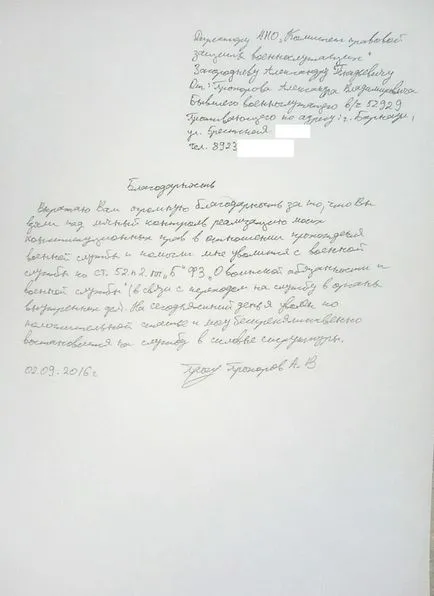 Директору АНО „Комитет правовой
защиты военнослужащих"
Загородневу Александру
От: Прохорова Александра Владимировича
Бывшего военнослужащего в/ч 52929
Проживающего по адресу: г. Барнаул,
ул. Брестская
тел. 8923
Благодарность
Выражаю Вам огромную благодарность за то, что Вы
взяли под личный контроль реализацию моих
конституционных прав в отношении прохождения
военной службы и помогли мне уволится с военной
службы по ст. 51 п 2 „Б" ФЗ „О воинской обязанности и
военной службы" (в связи с переходом на службу в органы
внутренних дел. На сегодняшний день я уволен по
положительной статье и могу беспрепятственно
востановится на службу в силовые структуры.
02.09.2016г Прохоров А. В